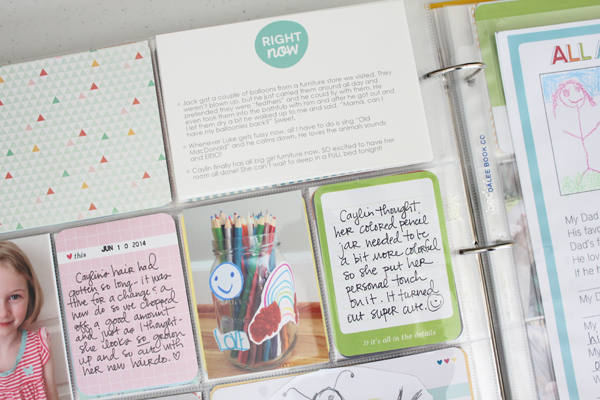 RIGHT
now
Jack got a couple of balloons from a furniture store we visited. They
weren't blown up, but he just carried them around all day and
pretended they were "feathers" and he could fly with them. He
even took them into the bathtub with him and after he got out and
I let them dry a bit he walked up to me and said, "Mama, can I
have my balloonies back?" Sweet.
Whenever Luke gets fussy now, all I have to do is sing "Old
MacDonald" and he calms down. He loves the animals sounds
and EIEIO!
Caylin finally has all big girl furniture now. SO excited to have her
room all done! She can't wait to sleep in a FULL bed tonight!
this JUN 10 2014
Caylin's hair had
gotten so long - it was
time for a change & a
new do so we chopped
off a good amount
and just as I thought -
she looks so grown
up and so cute with
her new hairdo.
LOVE
Caylin thought
her colored pencil
jar needed to be
a bit more colorful
so she put her
personal touch
on it. It turned
out super cute.
it's all in the details
DALEE BOOK CO
ALL A
My Dad
His favo
Dad's f
He lov
If he h
My D
My